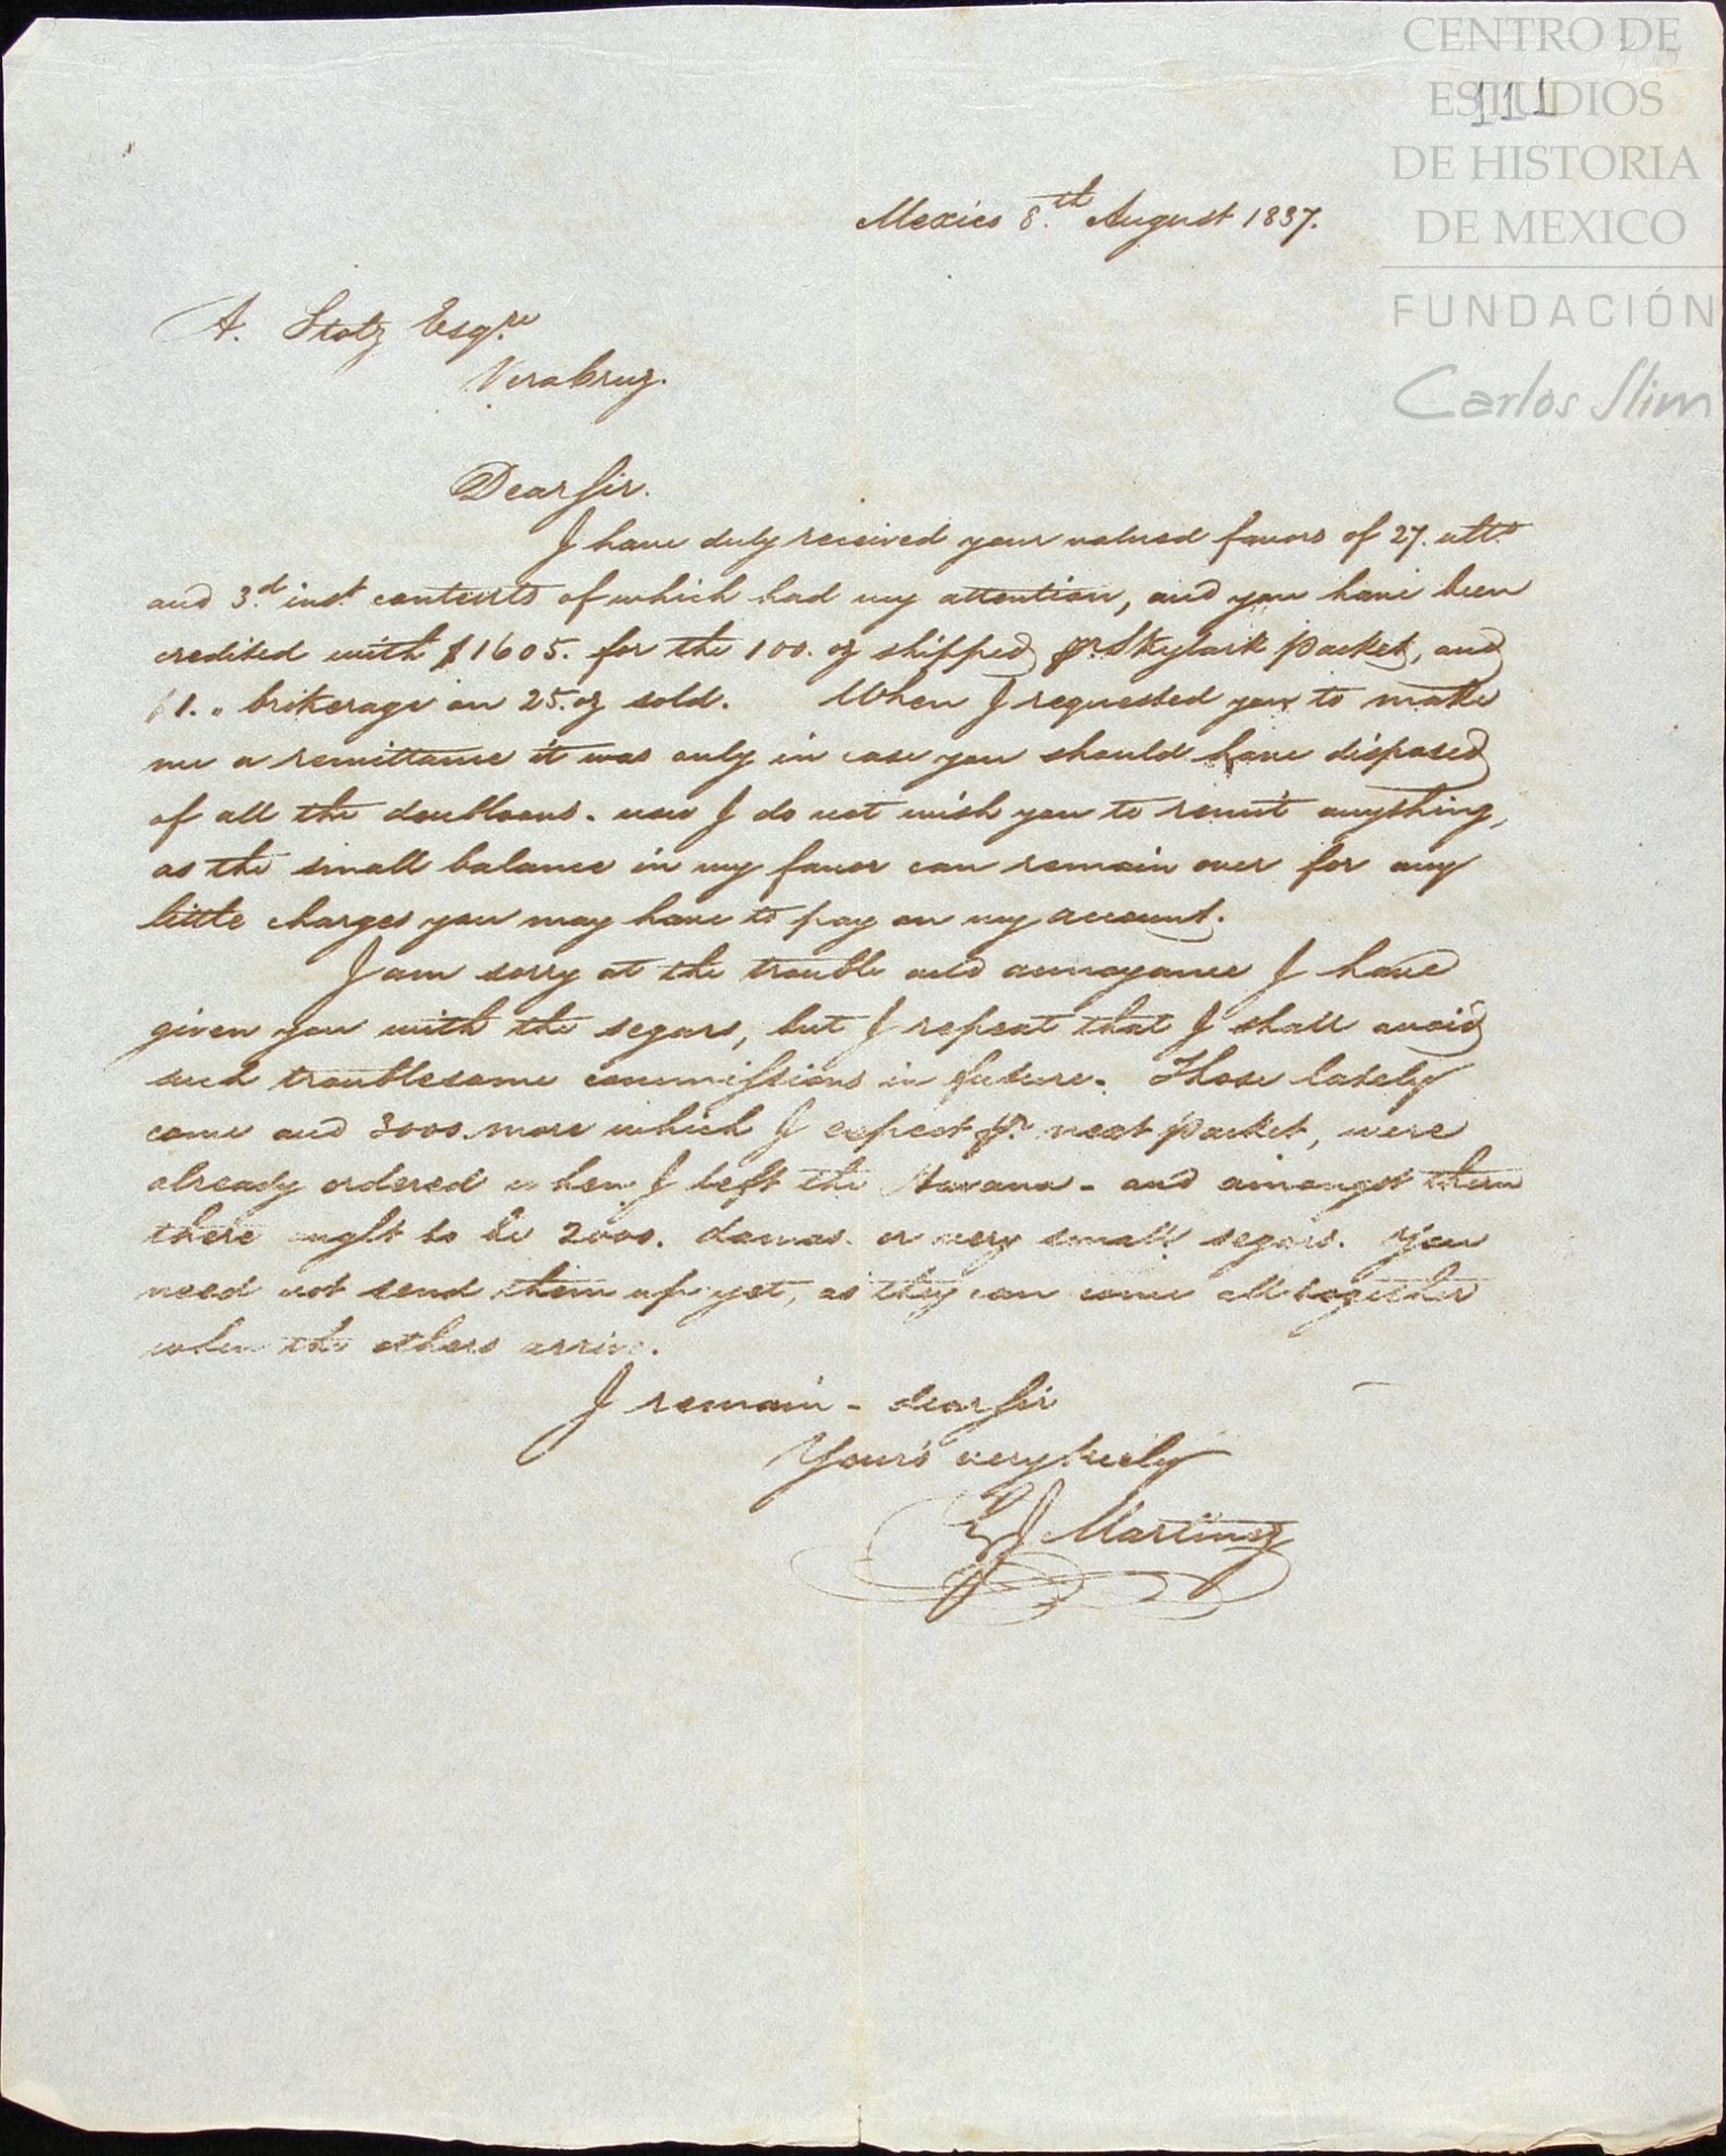 CENTRO DE
ESTUDIOS
111
DE HISTORIA
DE MEXICO
FUNDACIÓN
Carlos Slim
Mexico 8.th August 1837.
A. Stolz Esqre
VeraCruz.
Dear Sir.
I have duly received your valued favors of 27. ulto
and 3.d inst. contents of which had my attention, and you have been
credited with $1605. for the 100. oz shipped pr. Skylark packet, and
$1. " brokerage on 25. oz sold. When I requested you to make
me a remittance it was only in case you should have disposed
of all the doubloons. now I do not wish you to remit anything,
as the small balance in my favor can remain over for any
little charges you may have to pay on my account.
I am sorry at the trouble and annoyance I have
given you with the segars, but I repeat that I shall avoid
such troublesome commissions in future. Those lately
come and 3000. more which I expect pr. next packet, were
already ordered when I left the Havana - and amongst them
there ought to be 2000. damas. or very small segars. You
need not send them up yet, as they can come all together
when the others arrive.
I remain - dear Sir
Yours very truly
Martinez